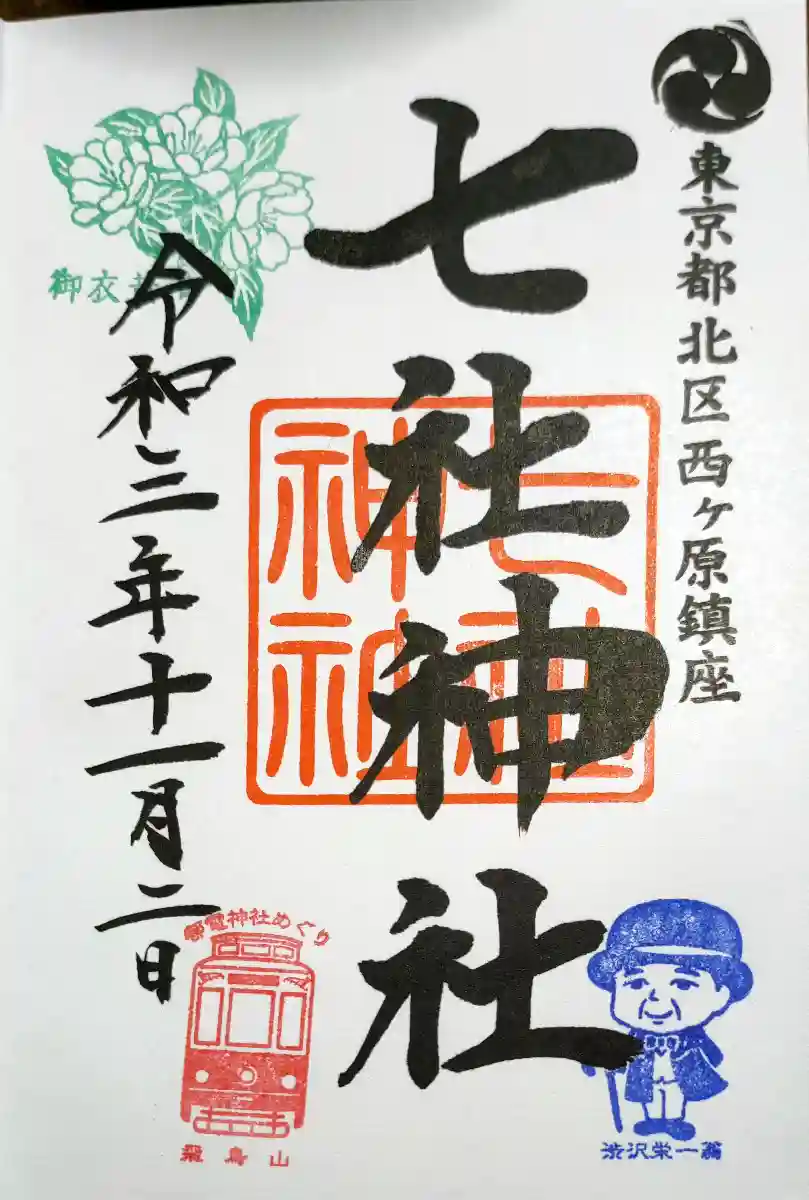 東京都北区西ヶ原鎮座
七社神社
七社
神社
令和三年十一月二日
御衣
電神社めぐり
飛鳥山
渋沢栄一翁